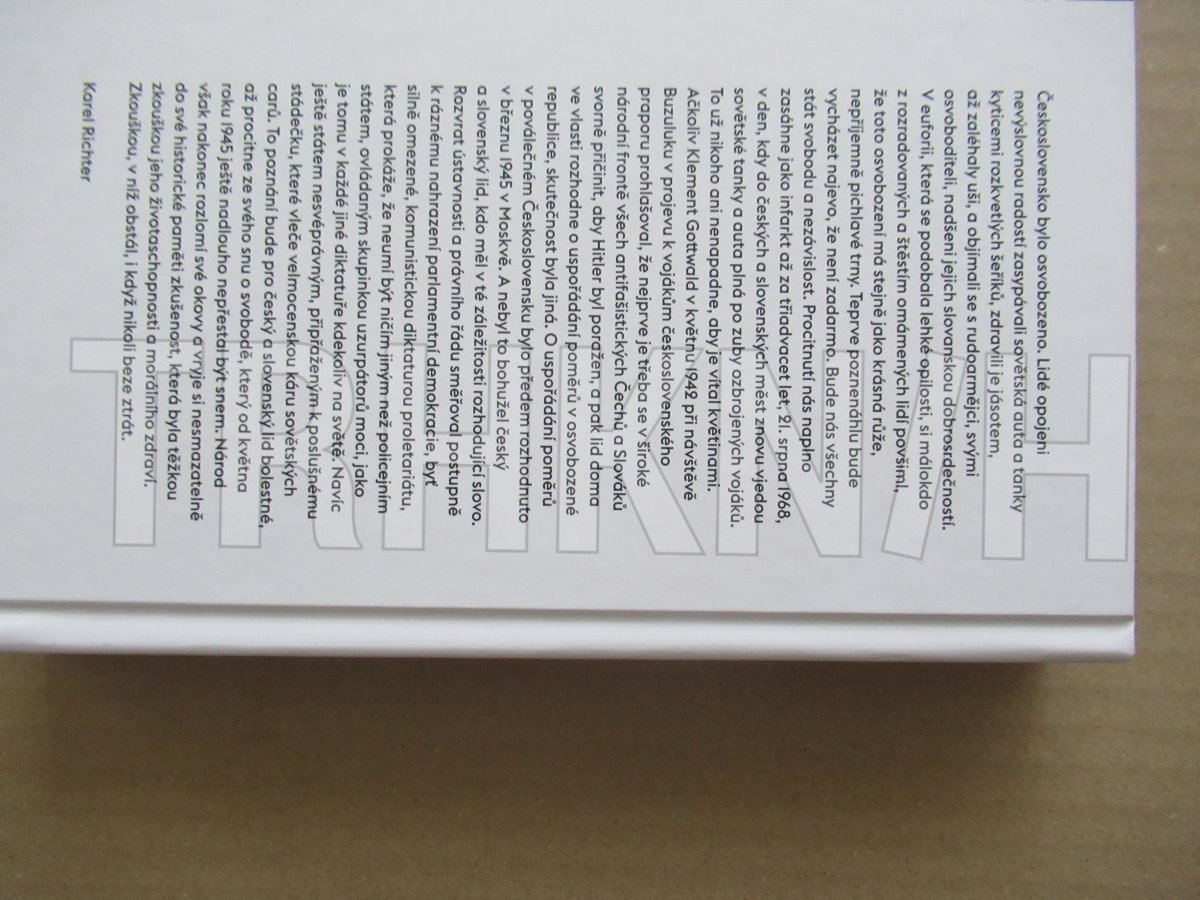 Československo bylo osvobozeno. Lidé opojeni
nevýslovnou radostí zasypávali sovětská auta a tanky
kyticemi rozkvetlých šeříků, zdravili je jásotem,
až zaléhaly uši, a objímali se s rudoarmějci, svými
osvoboditeli, nadšeni jejich slovanskou dobrosrdečností.
V euforii, která se podobala lehké opilosti, si málokdo
z rozradovaných a štěstím omámených lidí povšiml,
že toto osvobození má stejně jako krásná růže,
nepříjemně pichlavé trny. Teprve poznenáhlu bude
vycházet najevo, že není zadarmo. Bude nás všechny
stát svobodu a nezávislost. Procitnutí nás naplno
zasáhne jako infarkt až za třiadvacet let, 21. srpna 1968,
v den, kdy do českých a slovenských měst znovu vjedou
sovětské tanky a auta plná po zuby ozbrojených vojáků.
To už nikoho ani nenapadne, aby je vítal květinami.
Ačkoliv Klement Gottwald v květnu 1942 při návštěvě
Buzuluku v projevu k vojákům československého
praporu prohlašoval, že nejprve je třeba se v široké
národní frontě všech antifašistických Čechů a Slováků
svorně přičinit, aby Hitler byl poražen, a pak lid doma
ve vlasti rozhodne o uspořádání poměrů v osvobozené
republice, skutečnost byla jiná. O uspořádání poměrů
v poválečném Československu bylo předem rozhodnuto
v březnu 1945 v Moskvě. A nebyl to bohužel český
a slovenský lid, kdo měl v té záležitosti rozhodující slovo.
Rozvrat ústavnosti a právního řádu směřoval postupně
k ráznému nahrazení parlamentní demokracie, byť
silně omezené, komunistickou diktaturou proletariátu,
která prokáže, že neumí být ničím jiným než policejním
státem, ovládaným skupinkou uzurpátorů moci, jako
je tomu v každé jiné diktatuře kdekoliv na světě. Navíc
ještě státem nesvéprávným, připřaženým k poslušnému
stádečku, které vleče velmocenskou káru sovětských
carů. To poznání bude pro český a slovenský lid bolestné,
až procitne ze svého snu o svobodě, který od května
roku 1945 ještě nadlouho nepřestal být snem. Národ
však nakonec rozlomí své okovy a vryje si nesmazatelně
do své historické paměti zkušenost, která byla těžkou
zkouškou jeho životaschopnosti a morálního zdraví.
Zkouškou, v níž obstál, i když nikoli beze ztrát.
Karel Richter